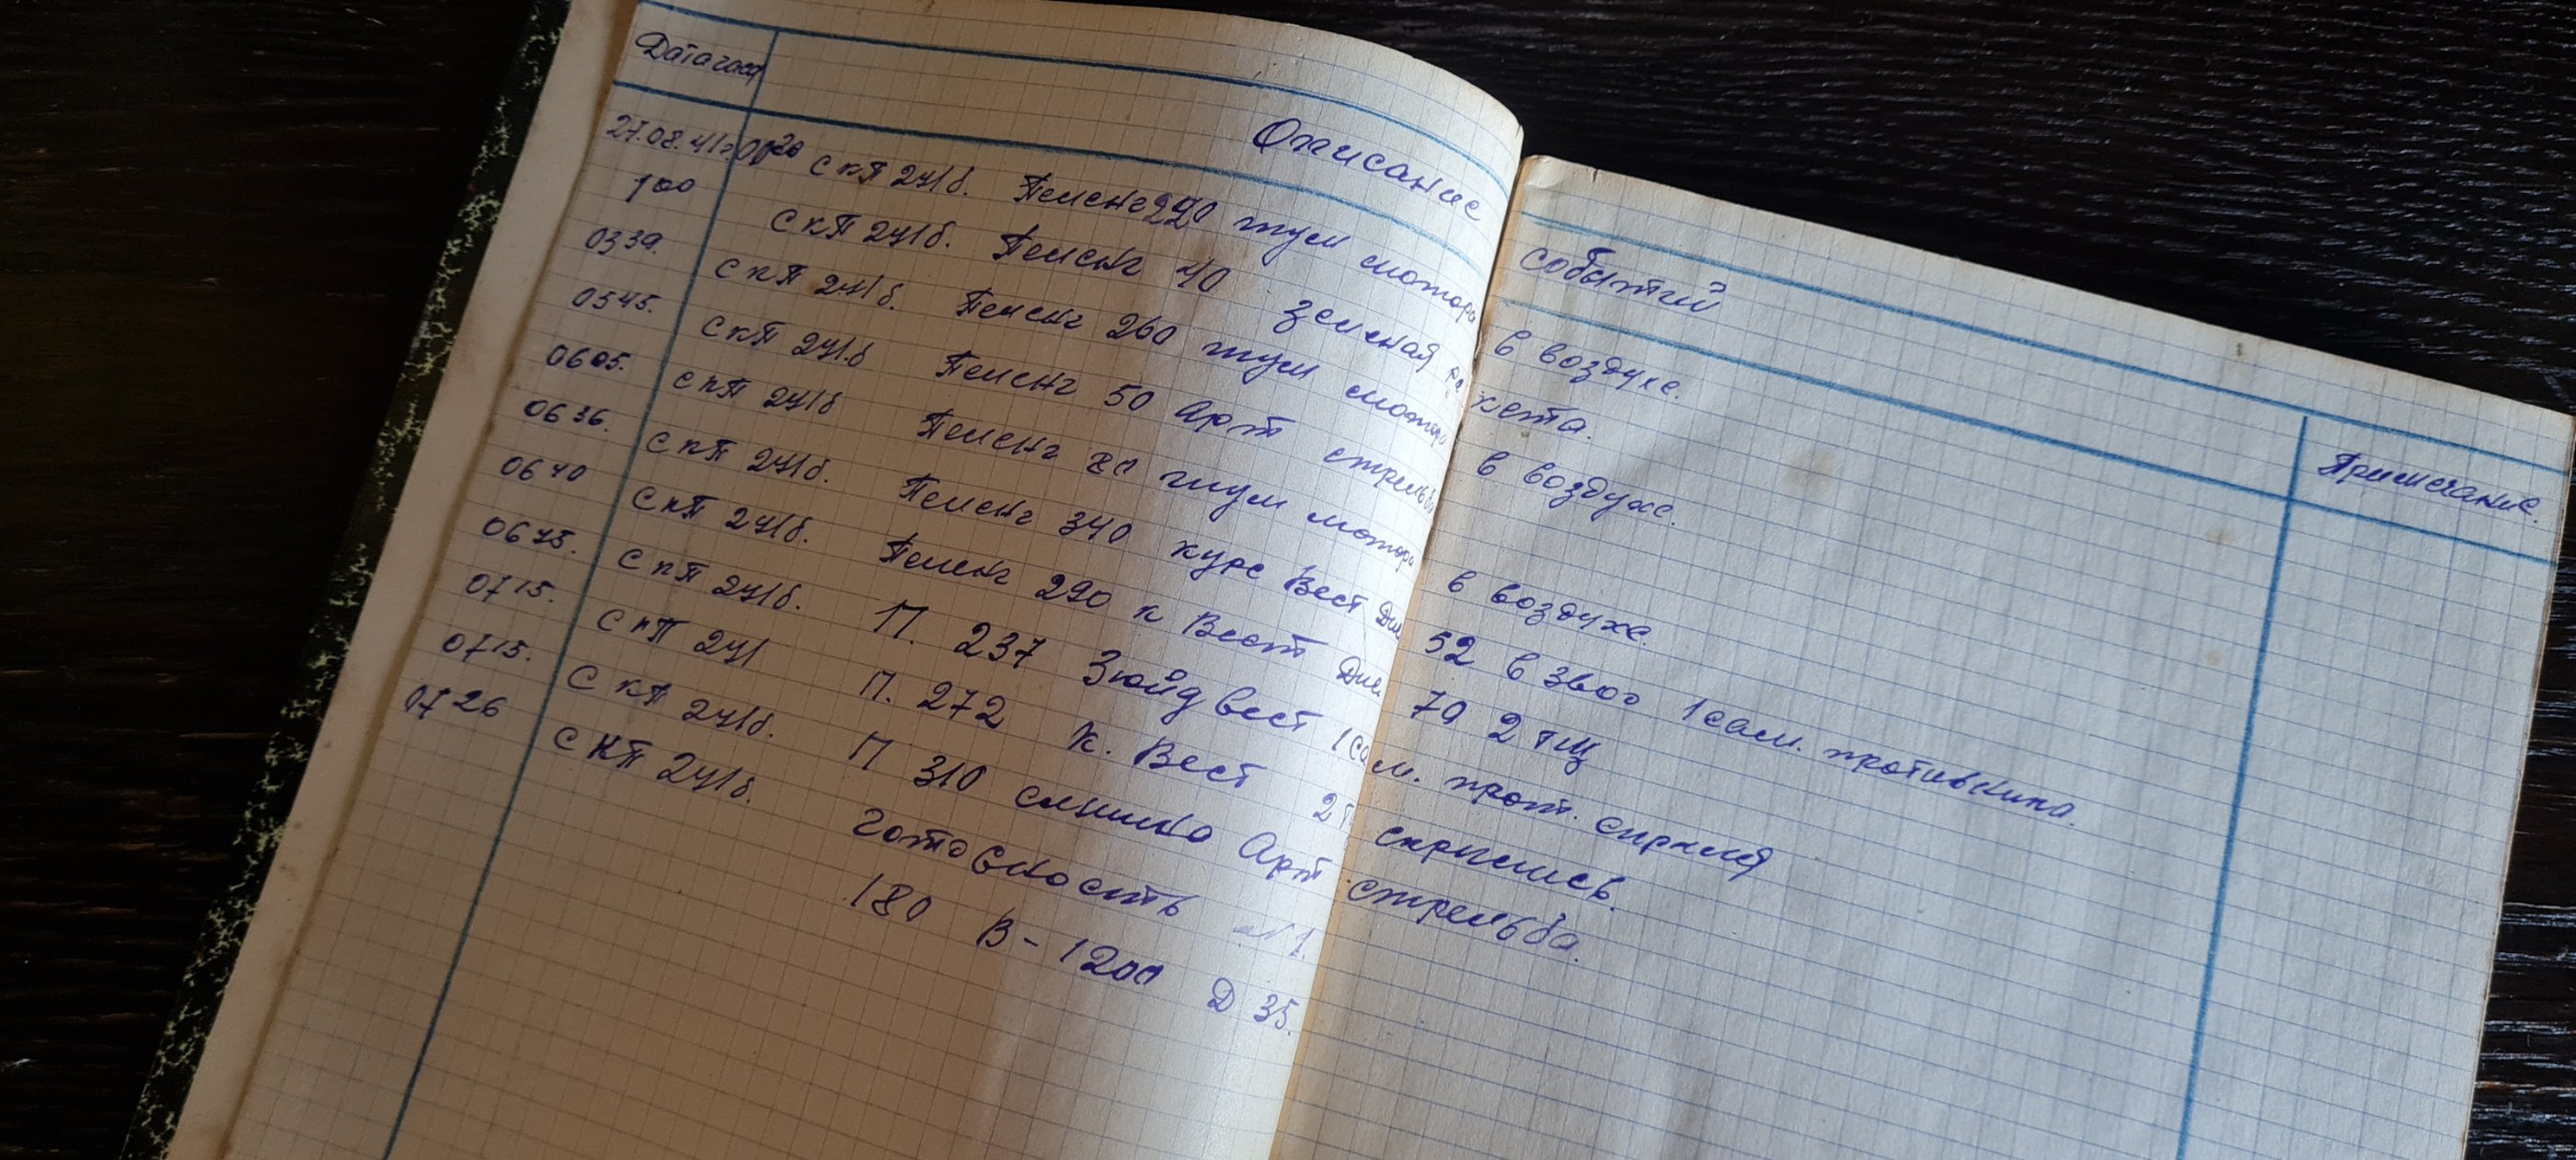 Дата час Описание событий Примечание.
27.08.41г. 0020 С КП 241б. Пеленг 220 шум мотора в воздухе.
100 С КП 241б. Пеленг 40 зеленая ракета.
0339. С КП 241б. Пеленг 260 шум мотора в воздухе.
0545. С КП 241.б Пеленг 50 Арт стрельба
0605. С КП 241б Пеленг шум мотора в воздухе.
0636. С КП 241б. Пеленг 340 курс Вест Дис. 52 в 1 сам. противника.
0640 С КП 241б. Пеленг 290 к Вест Дис. 70 2 тщ
0645. С КП 241б. П. 237 Зюйд вест 1 сам. прот.
0715. С КП 241 П. 272 К. Вест 2 скрылись.
0715. С КП 241б. П 310 слышно Арт стрельба.
0726 С КП 241б. готовность №1.
180 В-1200 Д 35.